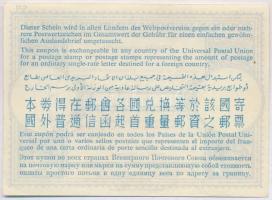 Dieser Schein wird in allen Ländern des Weltpostvereins gegen ein oder mehrere
Postwertzeichen im Gesamtwert der Gebühr für einen einfachen gewöhnlichen
Auslandsbrief umgetauscht.
This coupon is exchangeable in any country of the Universal Postal Union
for a postage stamp or postage stamps representing the amount of postage
for an ordinary single-rate letter destined for a foreign country.
本券得在郵會各國兌換等於該國寄
國外普通信函起首重量郵資之郵票
Este cupón podrá ser canjeado en todos los Países de la Unión Postal
Universal por uno o varios sellos postales que representen el importe del franqueo
de una carta ordinaria de porte sencillo destinada al extranjero.
Этот купон во всех странах Всемирного Почтового Союза обменивается
на почтовую марку или марки на сумму представляющую собой стоимость
оплаты простого письма в одну единицу веса по адресу за границу.